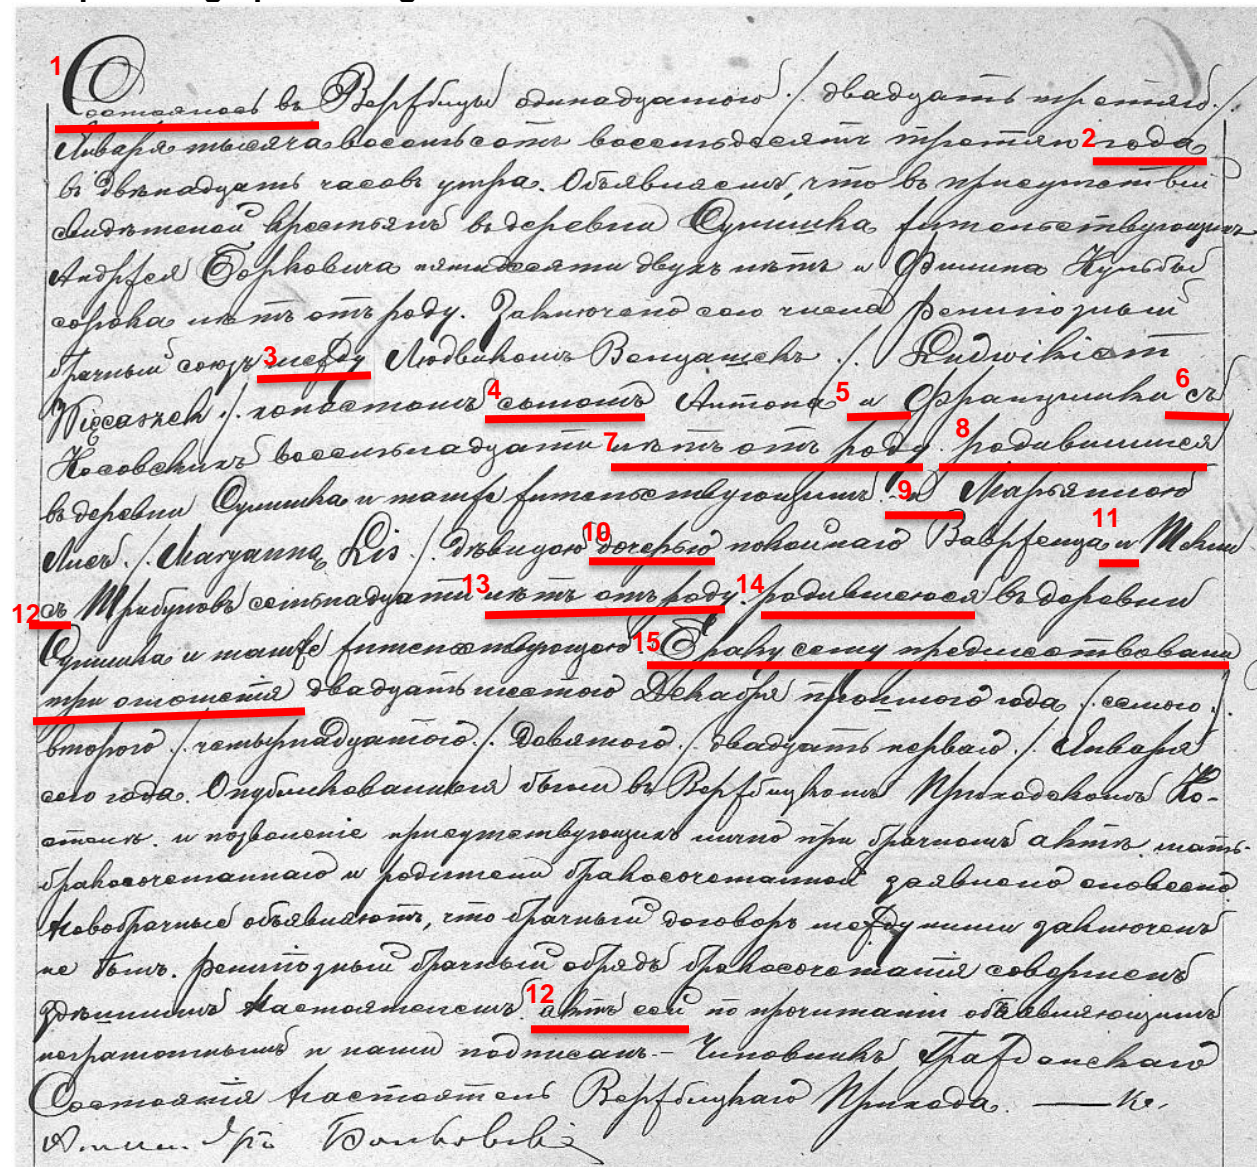 1 Состоялось въ Вержбицы одинадцатого /. двадцать третяго ./.
Января тысяча восемьсотъ восемьдесятъ третяго 2 года
въ двѣнадцать часовъ утра. Объявляемъ, что въ присутствіи
свидѣтелей крестьянъ въ деревни Сумишка жительствующихъ
Андржея Боржовича пятидесяти двухъ лѣтъ и Филипа
сорока лѣтъ отъ роду. Заключено сего числа религіозный
брачный союзъ 3 между Людвикомъ Венцашекъ ./. Ludwikiem
Więcaszek ./. холостымъ 4 сыномъ Антона 5 и Францишки 6 съ
Косовскихъ восемьнадцати 7 лѣтъ отъ роду. 8 родившимся
въ деревни Сумишка и тамже жительствующимъ 9 и Марьянною
Лисъ ./. Maryanną Lis ./. дѣвицою 10 дочерью покойнаго Ваврженца 11 и Текли
12 съ Трибуловъ семьнадцати 13 лѣтъ отъ роду. 14 родившеюся въ деревни
Сумишка и тамже жительствующею. 15 Браку сему предшествовали
три оглошенія двадцать шестого Декабря прошлого года /. семого ./.
второго ./. четырнадцатого ./. Девятого ./. двадцать перваго ./. Января
сего года. Опубликованныя были въ Вержбицкомъ Приходскомъ Ко-
стелѣ. и позволеніе присутствующихъ лично при брачномъ актѣ мать
бракосочетаннаго и родители бракосочетанной заявлено словесно
Новобрачные объявляютъ, что брачный договоръ между ними заключенъ
не былъ. религіозный брачный обрядъ бракосочетанія совершенъ
здѣшнимъ Настоятелемъ. 12 актъ сей по прочитаніи объявляющимъ
неграмотнымъ и нами подписанъ.- Чиновникъ Гражданскаго
Состоянія Настоятель Вержбицкаго Прихода. — Кс.